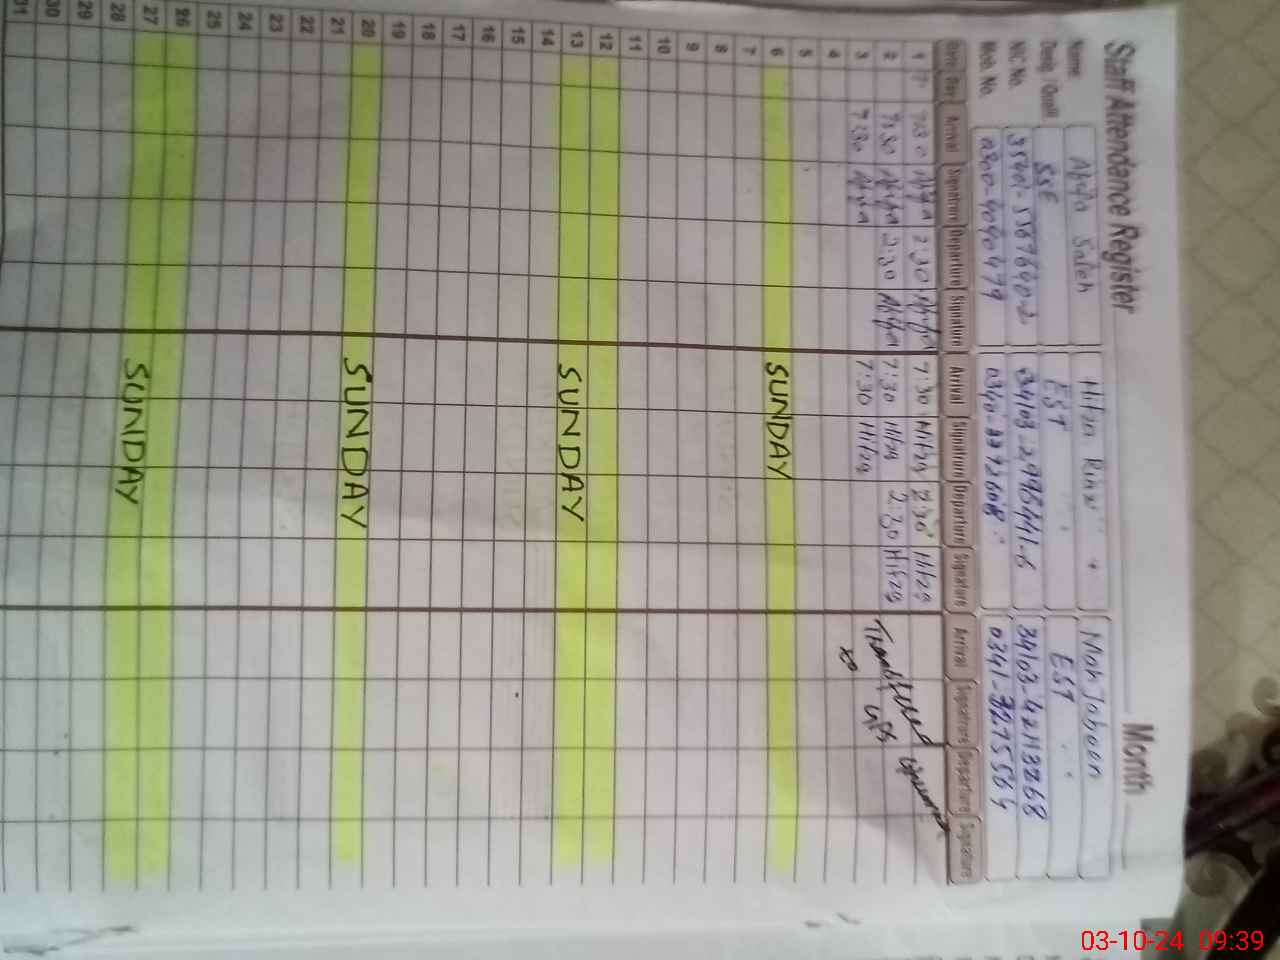 Staff Attendance Register Month
Name Hifza Riaz Mah Jabeen
Desig/Quali SSE EST EST
NIC No. 35401-5567640-2 34103-2996441-6 34103-42113268
Mob. No. 0300-4040479
Date Day Arrival Signature Departure Signature Arrival Signature Departure Signature Arrival Signature Departure Signature
1 7:30 2:30 7:30 Hifza 2:30 Hifza
2 7:30 2:30 7:30 Hifza 2:30 Hifza
3 7:30 7:30 Hifza
4
5
6 SUNDAY
7
8
9
10
11
12
13 SUNDAY
14
15
16
17
18
19
20 SUNDAY
21
22
23
24
25
26
27 SUNDAY
28
29
30
31
03-10-24 09:39